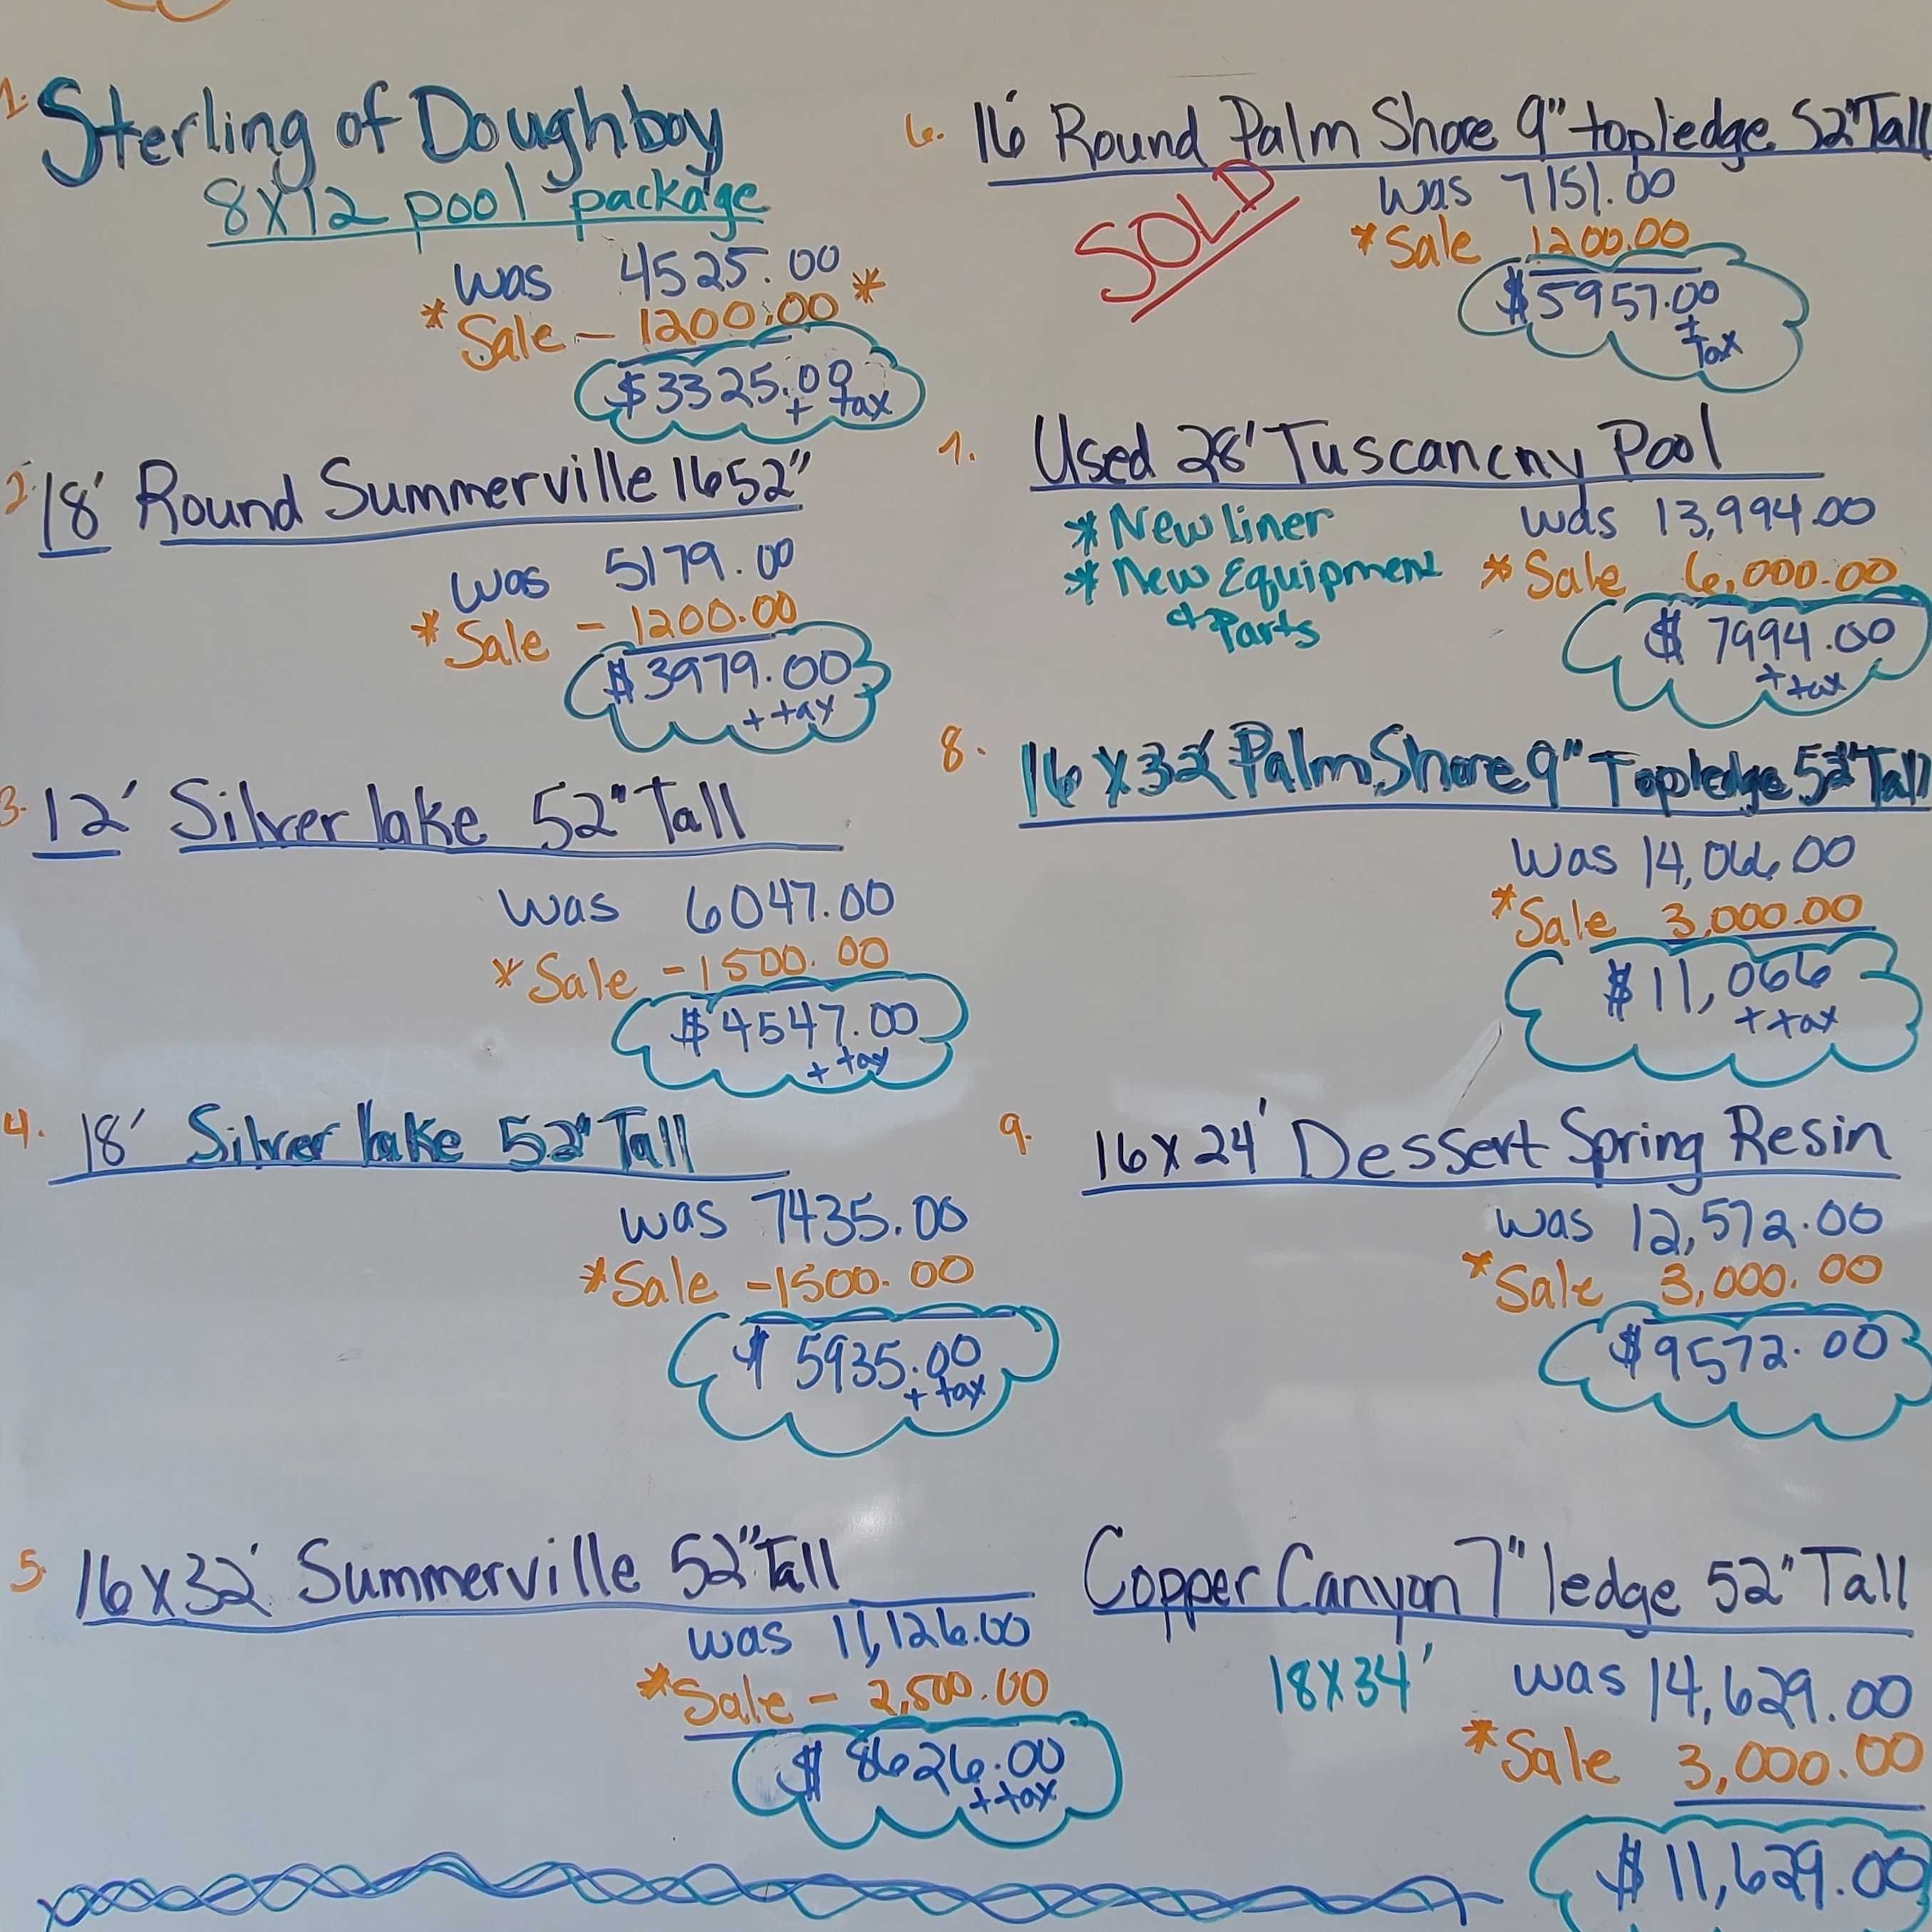 1. Sterling of Doughboy
8x12 pool package
was 4525.00
*Sale - 1200.00*
$3325.00
+ tax
2. 18' Round Summerville 1652"
was 5179.00
*Sale - 1200.00
$3979.00
+ tax
3. 12' Silver lake 52" Tall
was 6047.00
*Sale - 1500.00
$4547.00
+ tax
4. 18' Silver lake 52" Tall
was 7435.00
*Sale - 1500.00
$5935.00
+ tax
5 16x32' Summerville 52" Tall
was 11,126.00
*Sale - 2,500.00
$8626.00
+ tax
6. 16' Round Palm Shore 9" topledge 52" Tall
SOLD
was 7151.00
*Sale 1200.00
$5957.00
+
tax
7. Used 28' Tuscancny Pool
*New liner
*New Equipment
& Parts
was 13,994.00
*Sale 6,000.00
$7994.00
+ tax
8. 16x32' Palm Shore 9" Topledge 52" Tall
was 14,066.00
*Sale 3,000.00
$11,066
+ tax
9. 16x24' Dessert Spring Resin
was 12,572.00
*Sale 3,000.00
$9572.00
Copper Canyon 7" ledge 52" Tall
18x34'
was 14,629.00
*Sale 3,000.00
$11,629.00